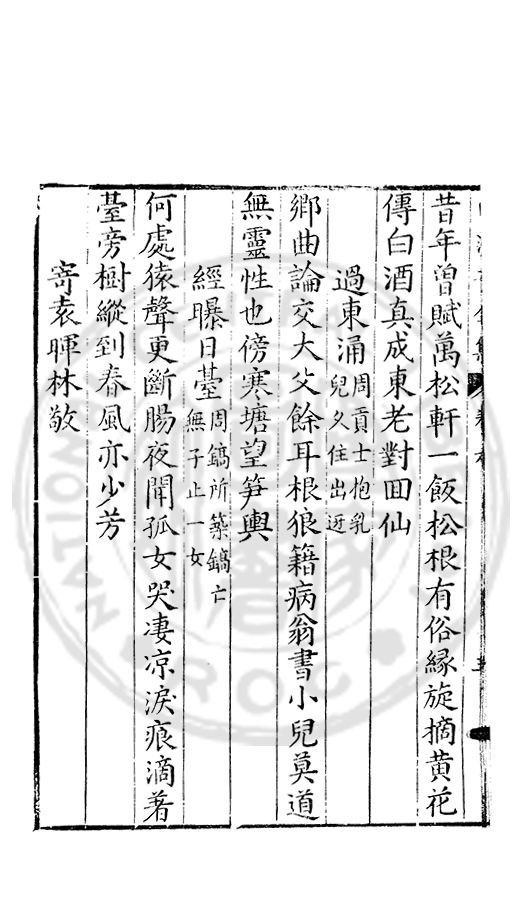 昔年曾賦萬松軒一飯松根有俗緣旋摘黃花
傳白酒真成東老對回仙
過東涌周貢士抱乳兒久住出迓
鄉曲論交大父餘耳根狼籍病翁書小兒莫道
無靈性也傍寒塘望笋輿
經曝日臺周鎬所築鎬亡無子止一女
何處猿聲更斷腸夜聞孤女哭凄凉淚痕滴着
臺旁樹縱到春風亦少芳
寄袁暉林敬